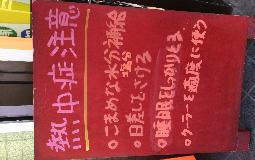 熱中症注意
○こまめな水分補給
塩分
○日差しさける
○睡眠をしっかりとる
○クーラーを適度に使う